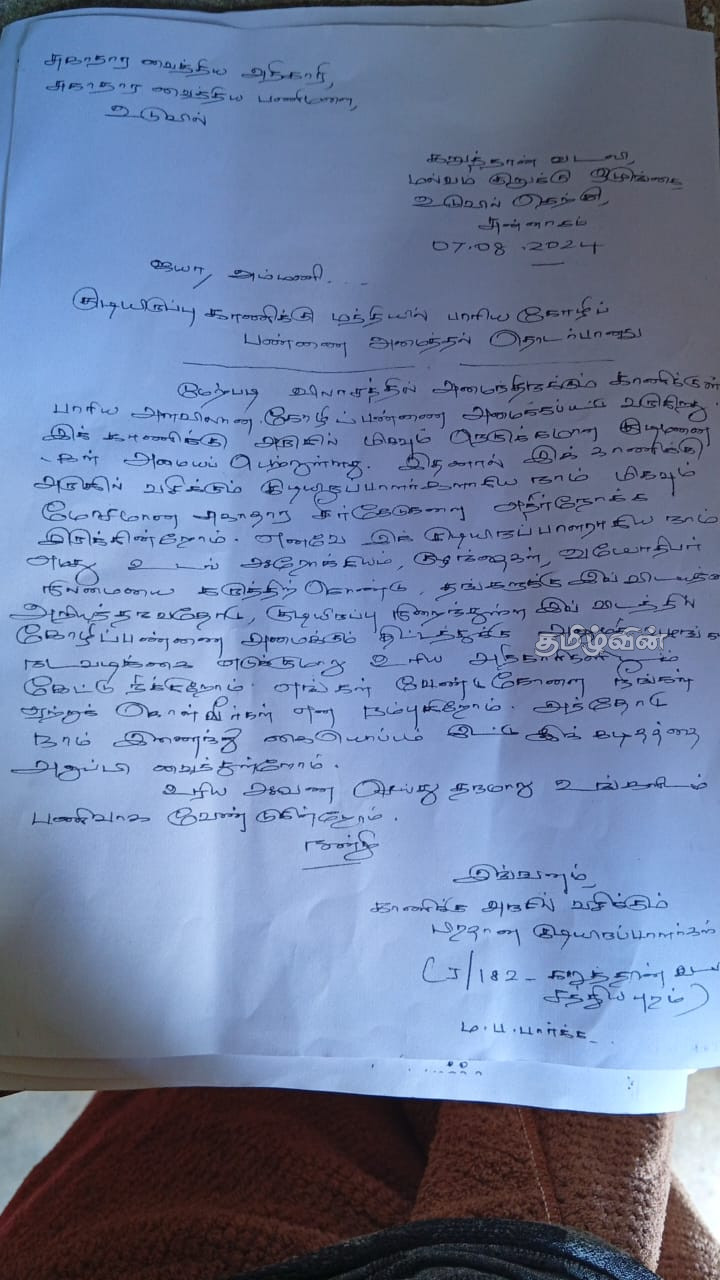 சுகாதார வைத்திய அதிகாரி,
சுகாதார வைத்திய பணிமனை,
உடுவில்
கறுத்தான் வடலி,
மல்வம் குறுக்கு ஒழுங்கை
உடுவில் தெற்கு,
சுன்னாகம்
07.08.2024
ஐயா/அம்மணி...
குடியிருப்பு காணிக்கு மத்தியில் பாரிய கோழிப்
பண்ணை அமைத்தல் தொடர்பானது
மேற்படி விலாசத்தில் அமைந்திருக்கும் காணிக்குள்
பாரிய அளவிலான கோழிப்பண்ணை அமைக்கப்பட்டு வருகிறது.
இக் காணிக்கு அருகில் மிகவும் நெருக்கமான குடிமனை
-கள் அமையப் பெற்றுள்ளது. இதனால் இக் காணிக்கு
அருகில் வசிக்கும் குடியிருப்பாளர்களாகிய நாம் மிகவும்
மோசமான சுகாதார சீர்கேடுகளை எதிர்நோக்க
இருக்கின்றோம். எனவே இக் குடியிருப்பாளராகிய நாம்
எமது உடல் ஆரோக்கியம், குழந்தைகள், வயோதிபர்
நிலைமையை கருத்திற் கொண்டு, தங்களுக்கு இவ் விடயத்தை
அறியத்தருவதோடு, குடியிருப்பு நிறைந்துள்ள இவ் விடத்தில்
கோழிப்பண்ணை அமைக்கும் திட்டத்துக்கு
நடவடிக்கை எடுக்குமாறு உரிய அதிகாரிகளிடம்
கேட்டு நிக்கிறோம். எங்கள் வேண்டுகோளை நீங்கள்
ஏற்றுக் கொள்வீர்கள் என நம்புகிறோம். அத்தோடு
நாம் இணைந்து கையொப்பம் இட்டு இக் கடிதத்தை
அனுப்பி வைத்துள்றோம்.
உரிய ஆவண செய்து தருமாறு உங்களிடம்
பணிவாக வேண்டுகின்றோம்.
நன்றி
இங்ஙனம்,
காணிக்கு அருகில் வசிக்கும்
பிரதான குடியிருப்பாளர்கள்
(J/182 - கறுத்தான் வட
சத்தியபுரம்)
தமிழ்வின்